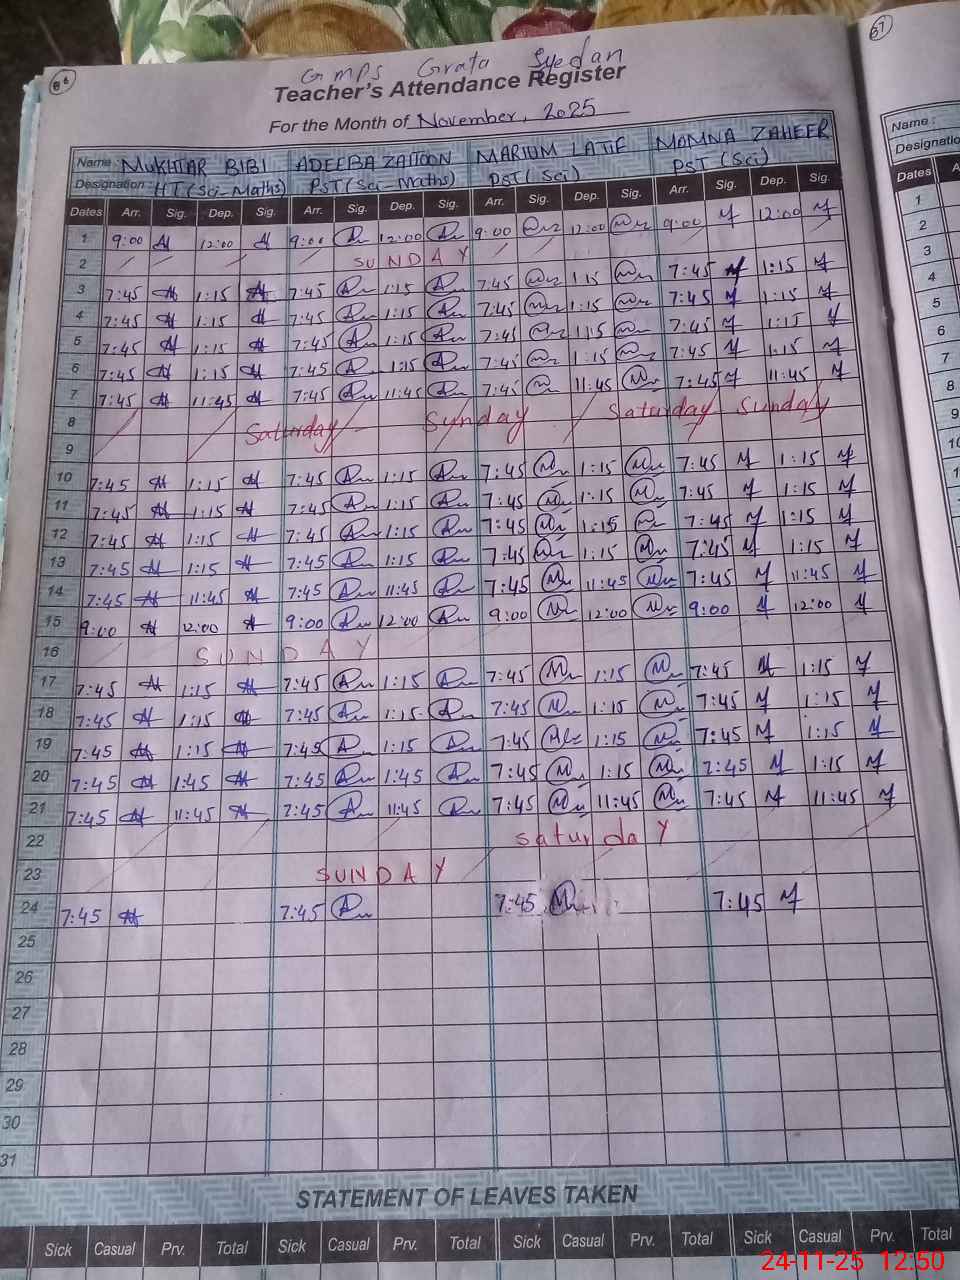 86
37
GMPS Grata Syedan
Teacher's Attendance Register
For the Month of November, 2025
Name: MUKHTAR BIBI ADEEBA ZAITOON MARIUM LATIF MOMNA ZAHEER
Designation: HT (Sci-Maths) PST (Sci-Maths) PST (Sci) PST (Sci)
Dates Arr. Sig. Dep. Sig. Arr. Sig. Dep. Sig. Arr. Sig. Dep. Sig. Arr. Sig. Dep. Sig.
1 9:00 12:00 9:00 12:00 9:00 12:00 9:00 12:00
2 SUNDAY
3 7:45 1:15 7:45 1:15 7:45 1:15 7:45 1:15
4 7:45 1:15 7:45 1:15 7:45 1:15 7:45 1:15
5 7:45 1:15 7:45 1:15 7:45 1:15 7:45 1:15
6 7:45 1:15 7:45 1:15 7:45 1:15 7:45 1:15
7 7:45 11:45 7:45 11:45 7:45 11:45 7:45 11:45
8 Saturday Sunday Saturday Sunday
9
10 7:45 1:15 7:45 1:15 7:45 1:15 7:45 1:15
11 7:45 1:15 7:45 1:15 7:45 1:15 7:45 1:15
12 7:45 1:15 7:45 1:15 7:45 1:15 7:45 1:15
13 7:45 1:15 7:45 1:15 7:45 1:15 7:45 1:15
14 7:45 11:45 7:45 11:45 7:45 11:45 7:45 11:45
15 9:00 12:00 9:00 12:00 9:00 12:00 9:00 12:00
16 SUNDAY
17 7:45 1:15 7:45 1:15 7:45 1:15 7:45 1:15
18 7:45 1:15 7:45 1:15 7:45 1:15 7:45 1:15
19 7:45 1:15 7:45 1:15 7:45 1:15 7:45 1:15
20 7:45 1:45 7:45 1:45 7:45 1:15 7:45 1:15
21 7:45 11:45 7:45 11:45 7:45 11:45 7:45 11:45
22 saturday
23 SUNDAY
24 7:45 7:45 7:45 7:45
25
26
27
28
29
30
31
STATEMENT OF LEAVES TAKEN
Sick Casual Prv. Total Sick Casual Prv. Total Sick Casual Prv. Total Sick Casual Prv. Total
Name:
Designatio
Dates A
1
2
3
4
5
6
7
8
9
10
24-11-25 12:50